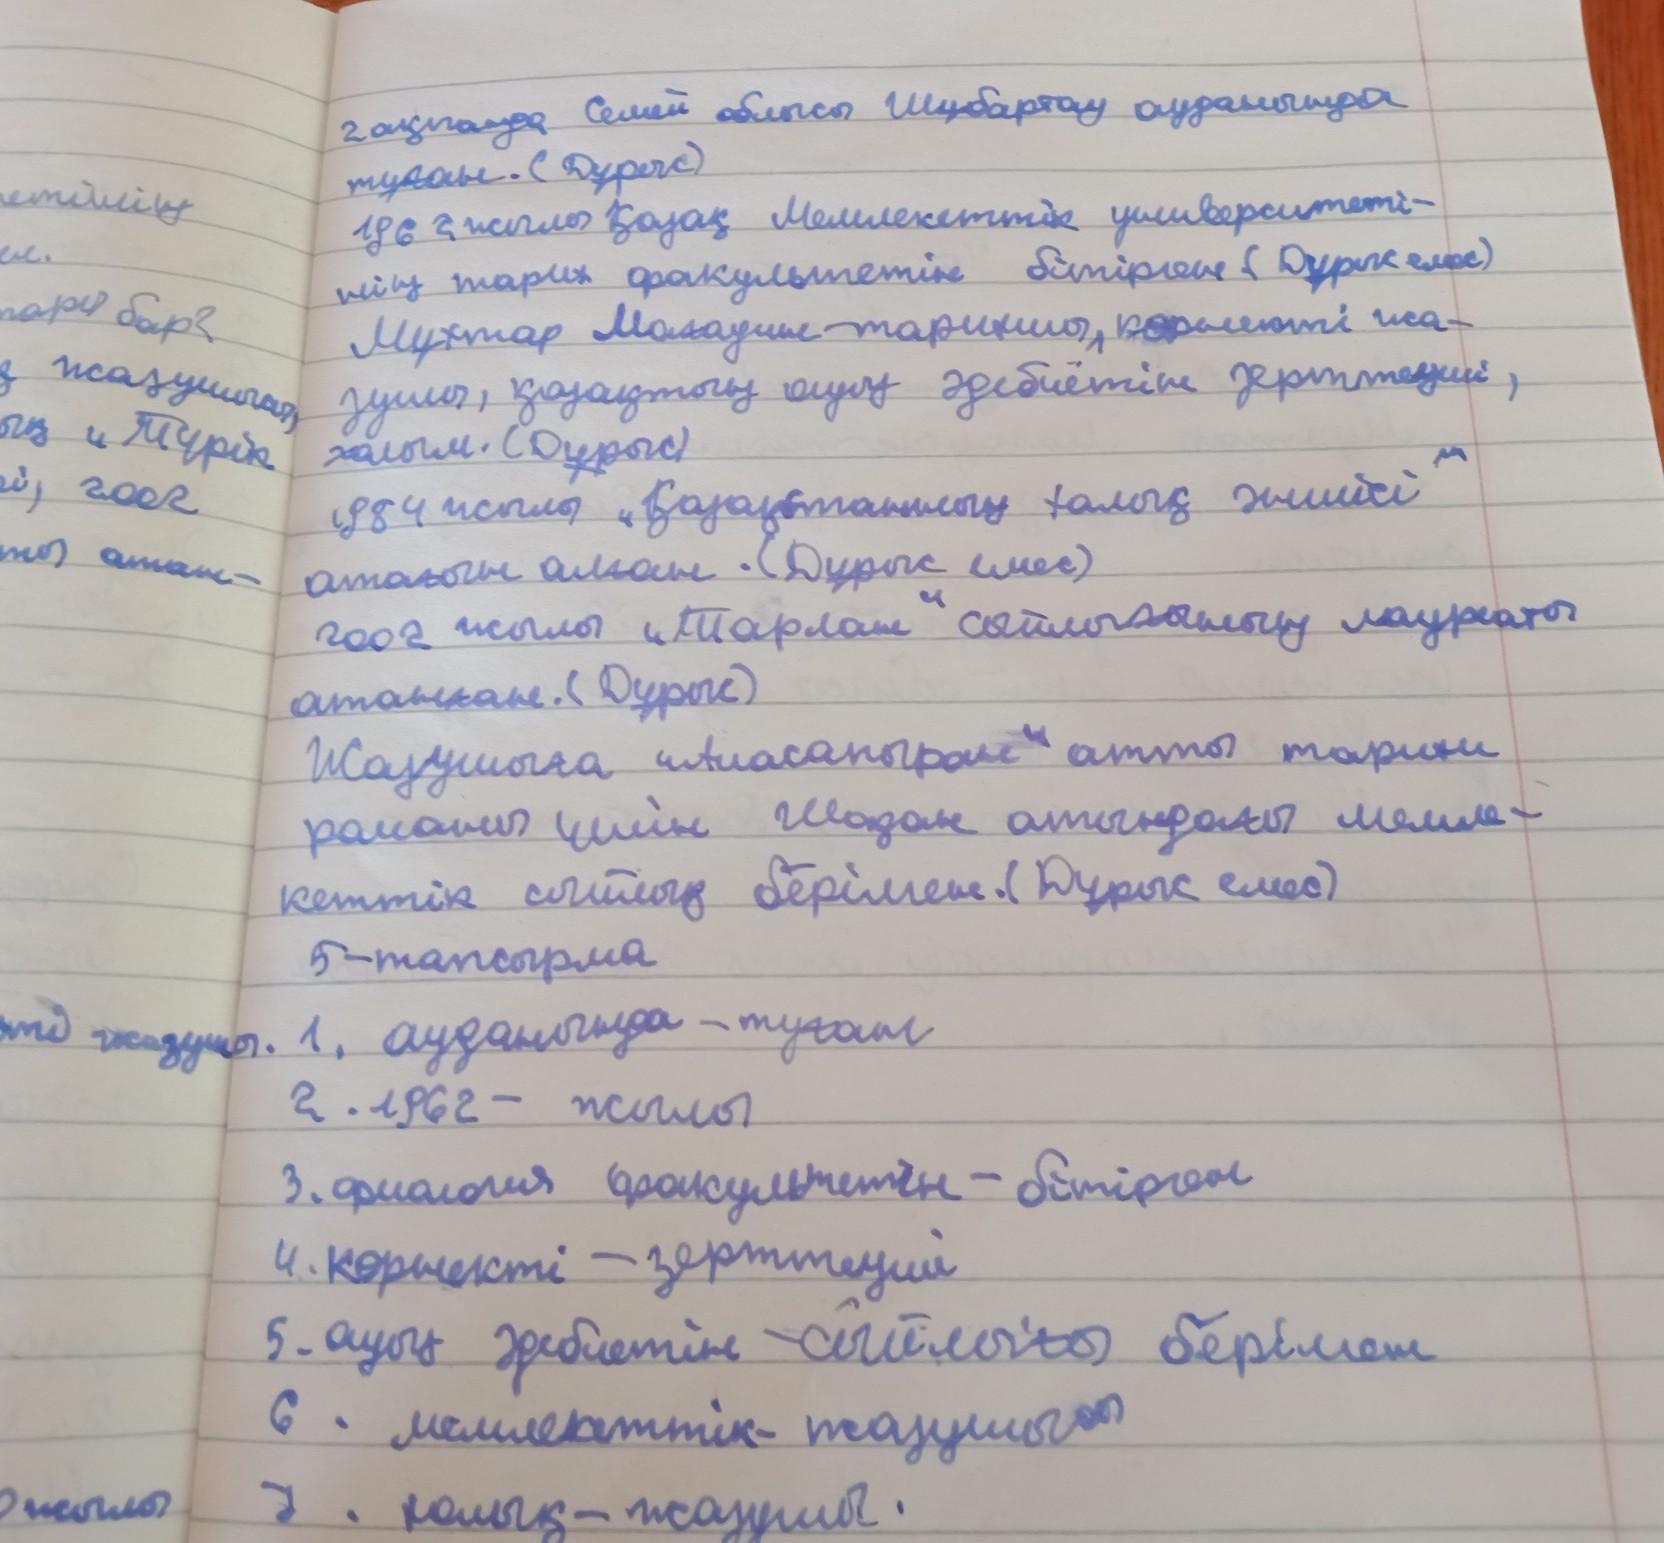 етінің
ен.
тары бар?
жазушысы,
ың „Түрік
і, 2002
ты атан-
жазушы.
жылы
2 ақпанда Семей облысы Шұбартау ауданында
туған. (Дұрыс)
1962 жылы Қазақ Мемлекеттік университеті-
нің тарих факультетін бітірген (Дұрыс емес)
Мұхтар Мағауин - тарихшы, көрнекті жа-
зушы, қазақтың ауыз әдебиетін зерттеуші,
ғалым. (Дұрыс)
1984 жылы „Қазақстанның халық әншісі"
атағын алған. (Дұрыс емес)
2002 жылы „Тарлан" сыйлығының лауреаты
атанған. (Дұрыс)
Жазушыға „Аласапыран" атты тарихи
романы үшін Шоқан атындағы мемле-
кеттік сыйлық берілген. (Дұрыс емес)
5-тапсырма
1. ауданында - туған
2. 1962 - жылы
3. филология факультетін - бітірген
4. көрнекті - зерттеуші
5. ауыз әдебиетін - сыйлығы берілген
6. мемлекеттік - жазушысы
7. халық - жазушы.